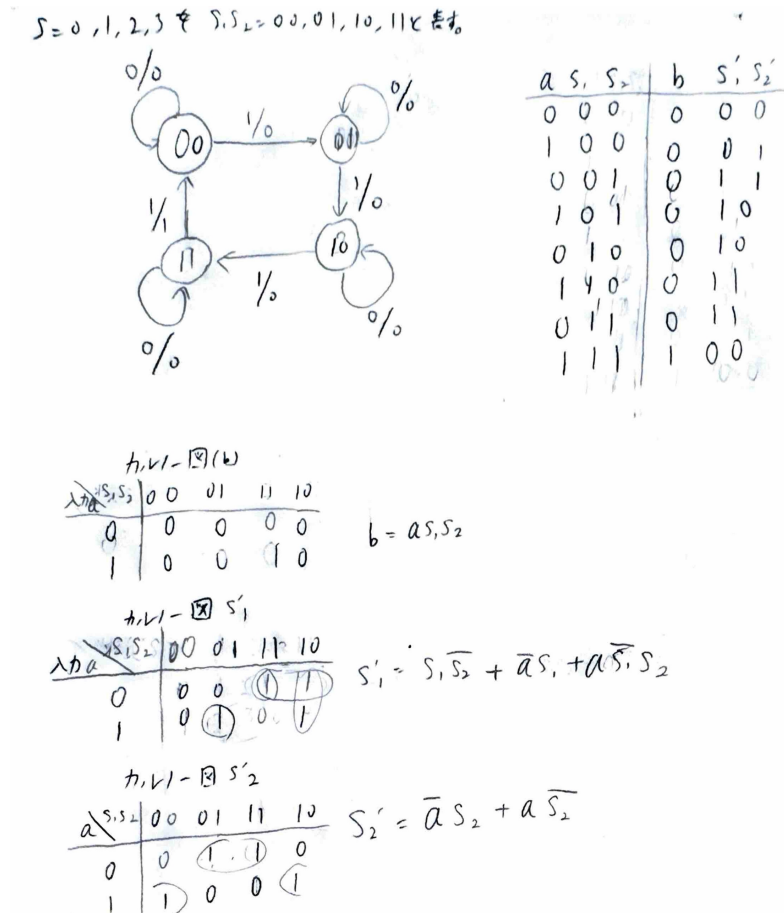 S=0,1,2,3を S₁S₂=00,01,10,11と表す。
0/0
00
1/0
01
0/0
1/0
10
0/0
1/0
11
0/0
1/1
a S₁ S₂ | b S₁' S₂'
0 0 0 | 0 0 0
1 0 0 | 0 0 1
0 0 1 | 0 1 1
1 0 1 | 0 1 0
0 1 0 | 0 1 0
1 1 0 | 0 1 1
0 1 1 | 0 1 1
1 1 1 | 1 0 0
カルノー図(b)
入力a S₁S₂ | 00 01 11 10
0 | 0 0 0 0
1 | 0 0 1 0
b = aS₁S₂
カルノー図 S₁'
入力a S₁S₂ | 00 01 11 10
0 | 0 0 1 1
1 | 0 1 0 1
S₁' = S₁S̅₂ + a̅S₁ + aS̅₁S₂
カルノー図 S₂'
a S₁S₂ | 00 01 11 10
0 | 0 1 1 0
1 | 1 0 0 1
S₂' = a̅S₂ + aS̅₂